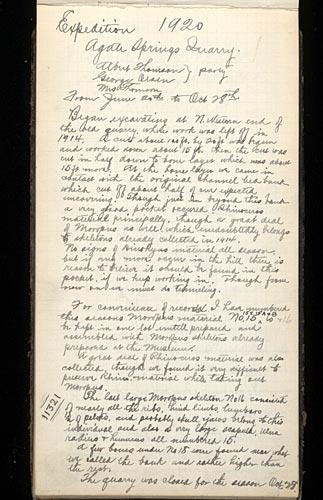 Expedition 1920
Agate Springs Quarry.
Albert Thomson } party
George Olsen
Mrs Thomson
From June to Oct 28th
Began excavating at N. Western end of
the old quarry, where work was left off in
1914. A cut about 20 ft was begun
and worked down about 15 ft. then the cut was
cut in half down to bone layer which was about
15 ft more. At the bone layer we came in
contact with the original channel bed bank
which cut off about half of our expected
uncovering. Though just beyond this bank
a very good pocket occured, Rhinoceros
material principally, though a great deal
of Moropus as well which undoubtedly belongs
to skeletons already collected in 1914.
No signs of Dinohyus material all season
but if any more occur in the hill there is
reason to believe it should be found in this
pocket, if we keep working in. Though from
now on we must do tunneling.
For convenience of record I have numbered
this seasons Moropus material No to
be kept in one lot untill prepared and
assembled with Moropus skeletons already
prepared at the Museum.
A great deal of Rhinoceros material was also
collected, though we found it very difficult to
preserve Rhino. material while taking out
moropus.
The last large Moropus skeleton No 16 consisted
of nearly all the ribs, hind limbs, lumbars
& pelvis, and probably skull &jaws belong to this
individual and also a very large scapula, ulna
radius & humerus all numbered 16.
A few bones under No 18 were found near what
we called the bank and rather higher than
the rest.
The quary was closed for the season Oct 28